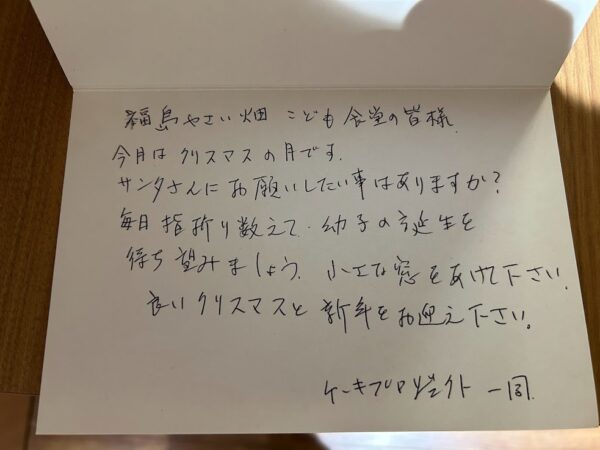 福島やさい畑 こども食堂の皆様
今月はクリスマスの月です.
サンタさんにお願いしたい事はありますか?
毎日指折り数えて.幼子の誕生を
待ち望みましょう.小さな窓をあけて下さい.
良いクリスマスと新年をお迎え下さい。
ケーキプロジェクト 一同.